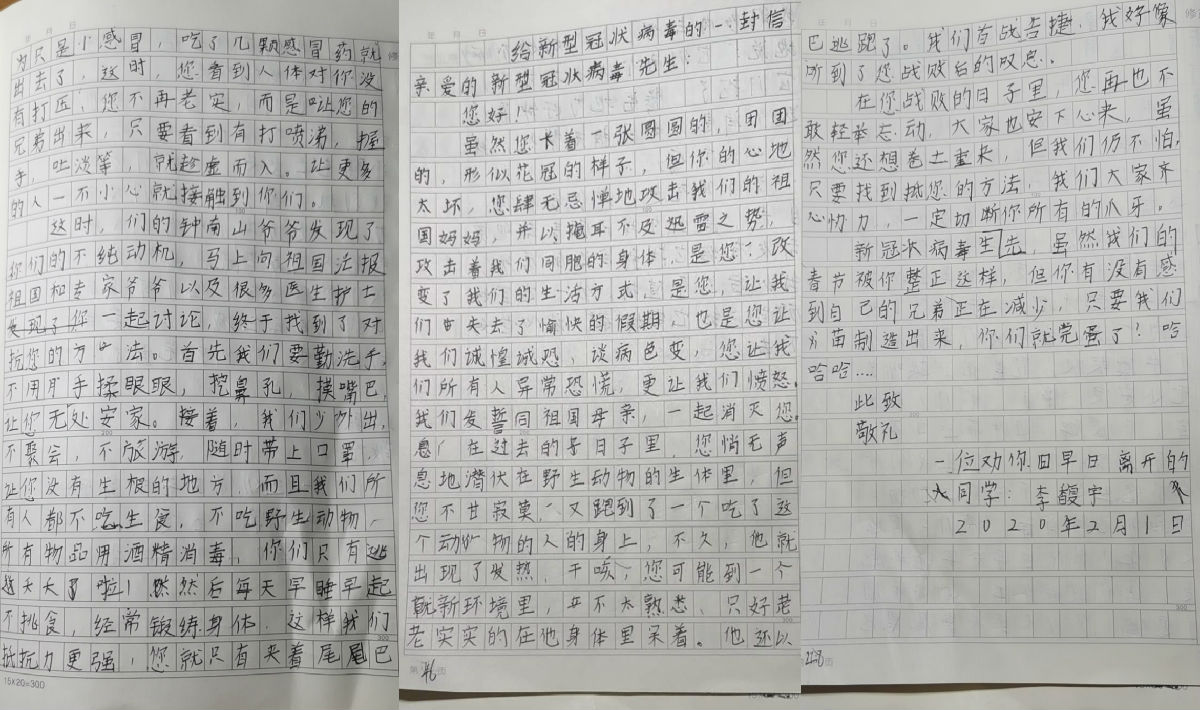 给新型冠状病毒的一封信
亲爱的新型冠状病毒先生：
您好！
虽然您长着一张圆圆的，田园
的，形似花冠的样子，但你的心地
太坏，您肆无忌惮地攻击我们的祖
国妈妈，并以掩耳不及迅雷之势，
攻击着我们同胞的身体，是您；改
变了我们的生活方式，是您，让我
们失去了愉快的假期，也是您让
我们诚惶诚恐，谈病色变，您让我
们所有人异常恐慌，更让我们愤怒。
我们发誓同祖国母亲，一起消灭您
在过去的日子里，您悄无声
息地潜伏在野生动物的生体里，但
您不甘寂寞，又跑到了一个吃了这
个动物的人的身上，不久，他就
出现了发热，干咳，您可能到一个
新环境里，并不太熟悉，只好老
老实实的在他身体里呆着。他还以
为只是小感冒，吃了几颗感冒药就
出去了，这时，您看到人体对你没
有打压，您不再老实，而是让您的
兄弟出来，只要看到有打喷涕，握
手，吐淡等，就趁虚而入。让更多
的人一不小心就接触到你们。
这时，们的钟南山爷爷发现了
你们的不纯动机，马上向祖国汇报
祖国和专家爷爷以及很多医生护士
一起讨论，终于找到了对
抗您的方法。首先我们要勤洗手，
不用手揉眼眼，挖鼻孔，摸嘴巴，
让您无处安家。接着，我们少外出，
不聚会，不旅游，随时带上口罩，
让您没有生根的地方，而且我们所
有人都不吃生食，不吃野生动物，
所有物品用酒精消毒，你们只有逃
啦！然后每天早睡早起
不挑食，经常锻练身体，这样我们
抵抗力更强，您就只有夹着尾巴
巴逃跑了。我们首战告捷，我好像
听到了您战败后的叹息。
在您战败的日子里，您再也不
敢轻举忘动，大家也安下心来，虽
然您还想卷土重来，但我们仍不怕，
只要找到抵您的方法，我们大家齐
心协力，一定切断你所有的爪牙。
新冠状病毒生先，虽然我们的
春节被你整正这样，但你有没有感
到自己的兄弟正在减少，只要我们
苗制造出来，你们就完蛋了！哈
哈哈....
此致
敬礼
一位劝你早日离开的
同学：李馥宇
2020年2月1日
15×20=300